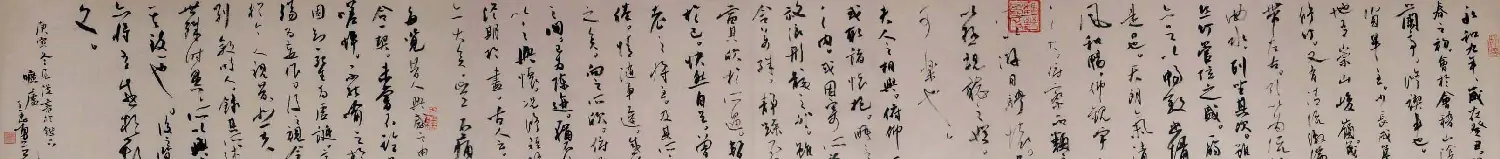 永和九年歲在癸丑
春之初會於會稽山陰
蘭亭脩禊事也
賢畢至少長咸集
地有崇山峻嶺茂
脩竹又有清流激湍
帶左右引以為流
曲水列坐其次雖
絲竹管弦之盛一觴
一詠亦足以暢敘幽情
是日也天朗氣清
風和暢仰觀宇
之大俯察品類
遊目騁懷
以極視聽之娛
可樂也
夫人之相與俯仰
或取諸懷抱晤
之內或因寄所
放浪形骸之外雖
舍萬殊靜躁不
當其欣於所遇暫
於己快然自足曾
老之將至及其所
倦情隨事遷感
之矣向之所欣俯
之間已為陳迹猶
以之興懷況脩短
終期於盡古人云
亦大矣豈不痛
每覽昔人興感之由
合契未嘗不臨
嗟悼不能喻之於
固知一死生為虛誕齊
殤為妄作後之視今
今之視昔悲夫
列敘時人錄其所述
世殊事異所以興
其致一也後之覽
亦將有感於斯
文
庚寅冬月